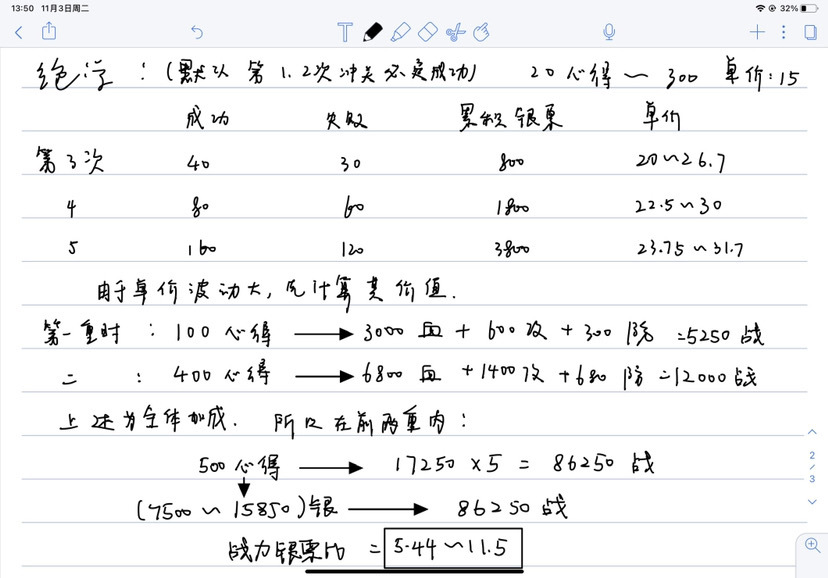 13:50 11月3日周二 32%
绝学：(默认第1.2次冲关必定成功) 20心得～300 单价:15
成功 失败 累积银票 单价
第3次 40 30 800 20～26.7
4 80 60 1800 22.5～30
5 160 120 3800 23.75～31.7
由于单价波动大,先计算其价值.
第一重时：100心得 → 3000血+600攻+300防=5250战
二：400心得 → 6800血+1400攻+680防=12000战
上述为全体加成.所以在前两重内：
500心得 → 17250×5=86250战
(7500～15850)银 → 86250战
战力银票比=5.44～11.5
2/3